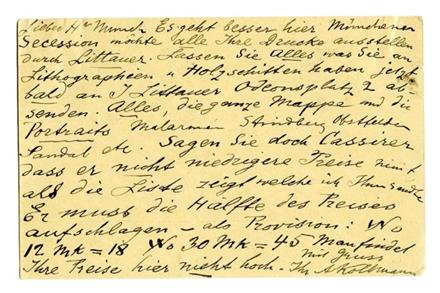 Lieber Hr Munch Es geht besser hier Münchener
Secession möchte alle Ihre Drucke ausstellen
durch Littauer. Lassen Sie Alles was Sie an
Lithographieen u Holzschitten haben jetzt
bald an J Littauer Odeonsplatz 2 ab
senden. Alles, die ganze Mappe und die
Portraits Milarmé Strindberg Obstfelder
Sandal etc. Sagen Sie doch Cassirer
dass er nicht niedrigere Preise nimt
als die Liste zeigt welche ich Ihnen sandte
Er muss die Hälfte des Preises
aufschlagen – als Provision: Wo
12 Mk = 18 Wo 30 Mk = 45 Man findet
Ihre Preise hier nicht hoch. Mit Gruss
Ihr A Kollmann